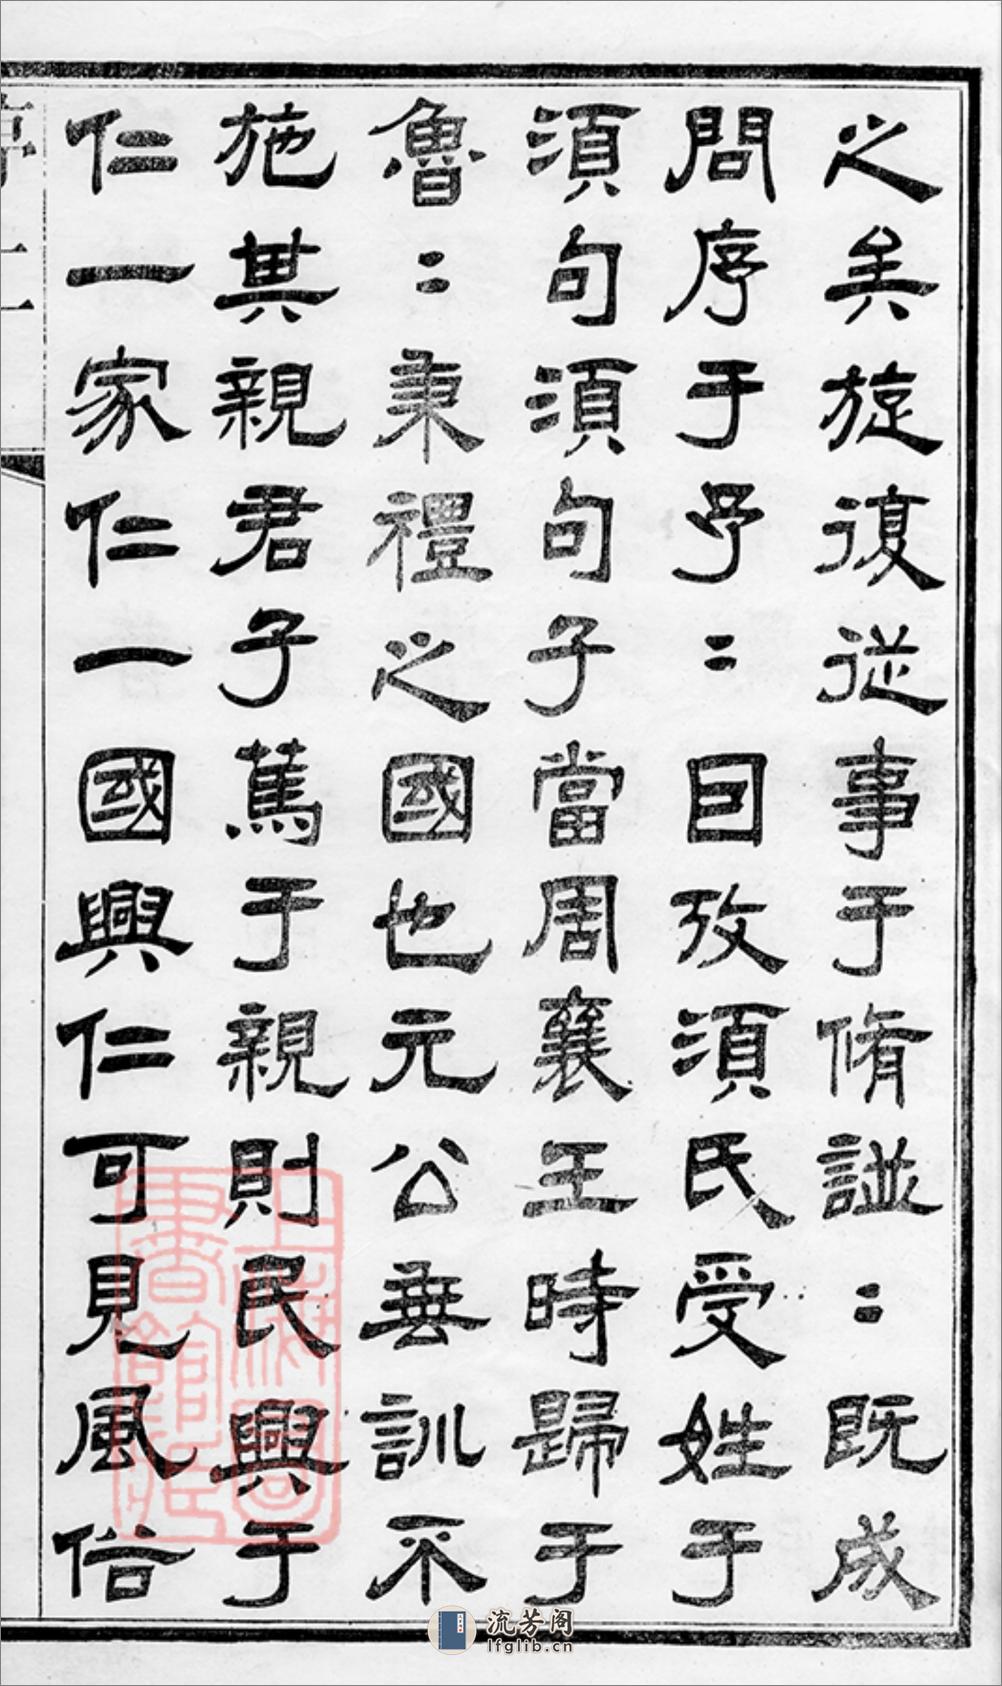 之矣旋復從事于脩譜〻既成
問序于予〻目攷須氏受姓于
須句須句子當周襄王時歸于
魯〻秉禮之國也元公垂訓不
施其親君子篤于親則民興于
仁一家仁一國興仁可見風俗
序 二
上海圖書館藏
流芳阁
lfglib.cn